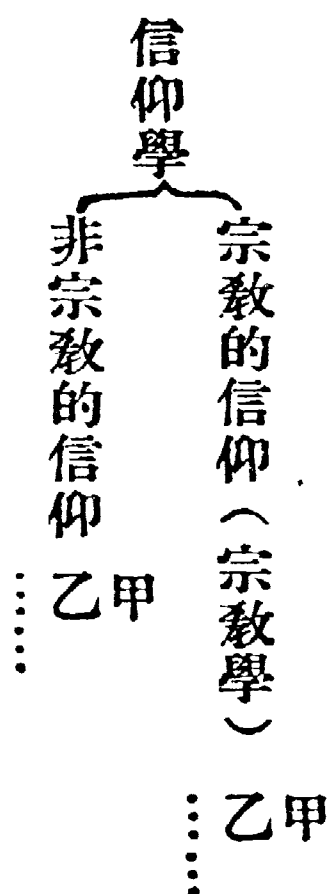 信仰學
宗敎的信仰（宗敎學）
甲
乙
……
非宗敎的信仰
甲
乙
……